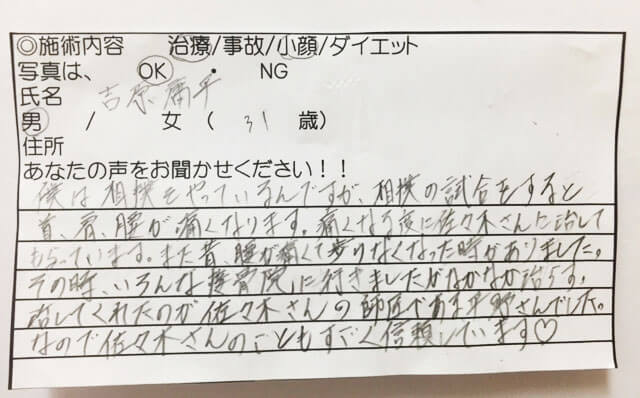 ◎施術内容　治療/事故/小顔/ダイエット
写真は、　OK ・ NG
氏名　吉原庸平
男　/　女（　31　歳）
住所
あなたの声をお聞かせください！！
僕は相撲をやっているんですが、相撲の試合をすると
首、肩、腰が痛くなります。痛くなる度に佐々木さんに治して
もらっています。また昔、腰が痛くて歩けなくなった時がありました。
その時、いろんな接骨院に行きましたがなかなか治らず、
治してくれたのが佐々木さんの師匠である平野さんでした。
なので佐々木さんのこともすごく信頼しています♡